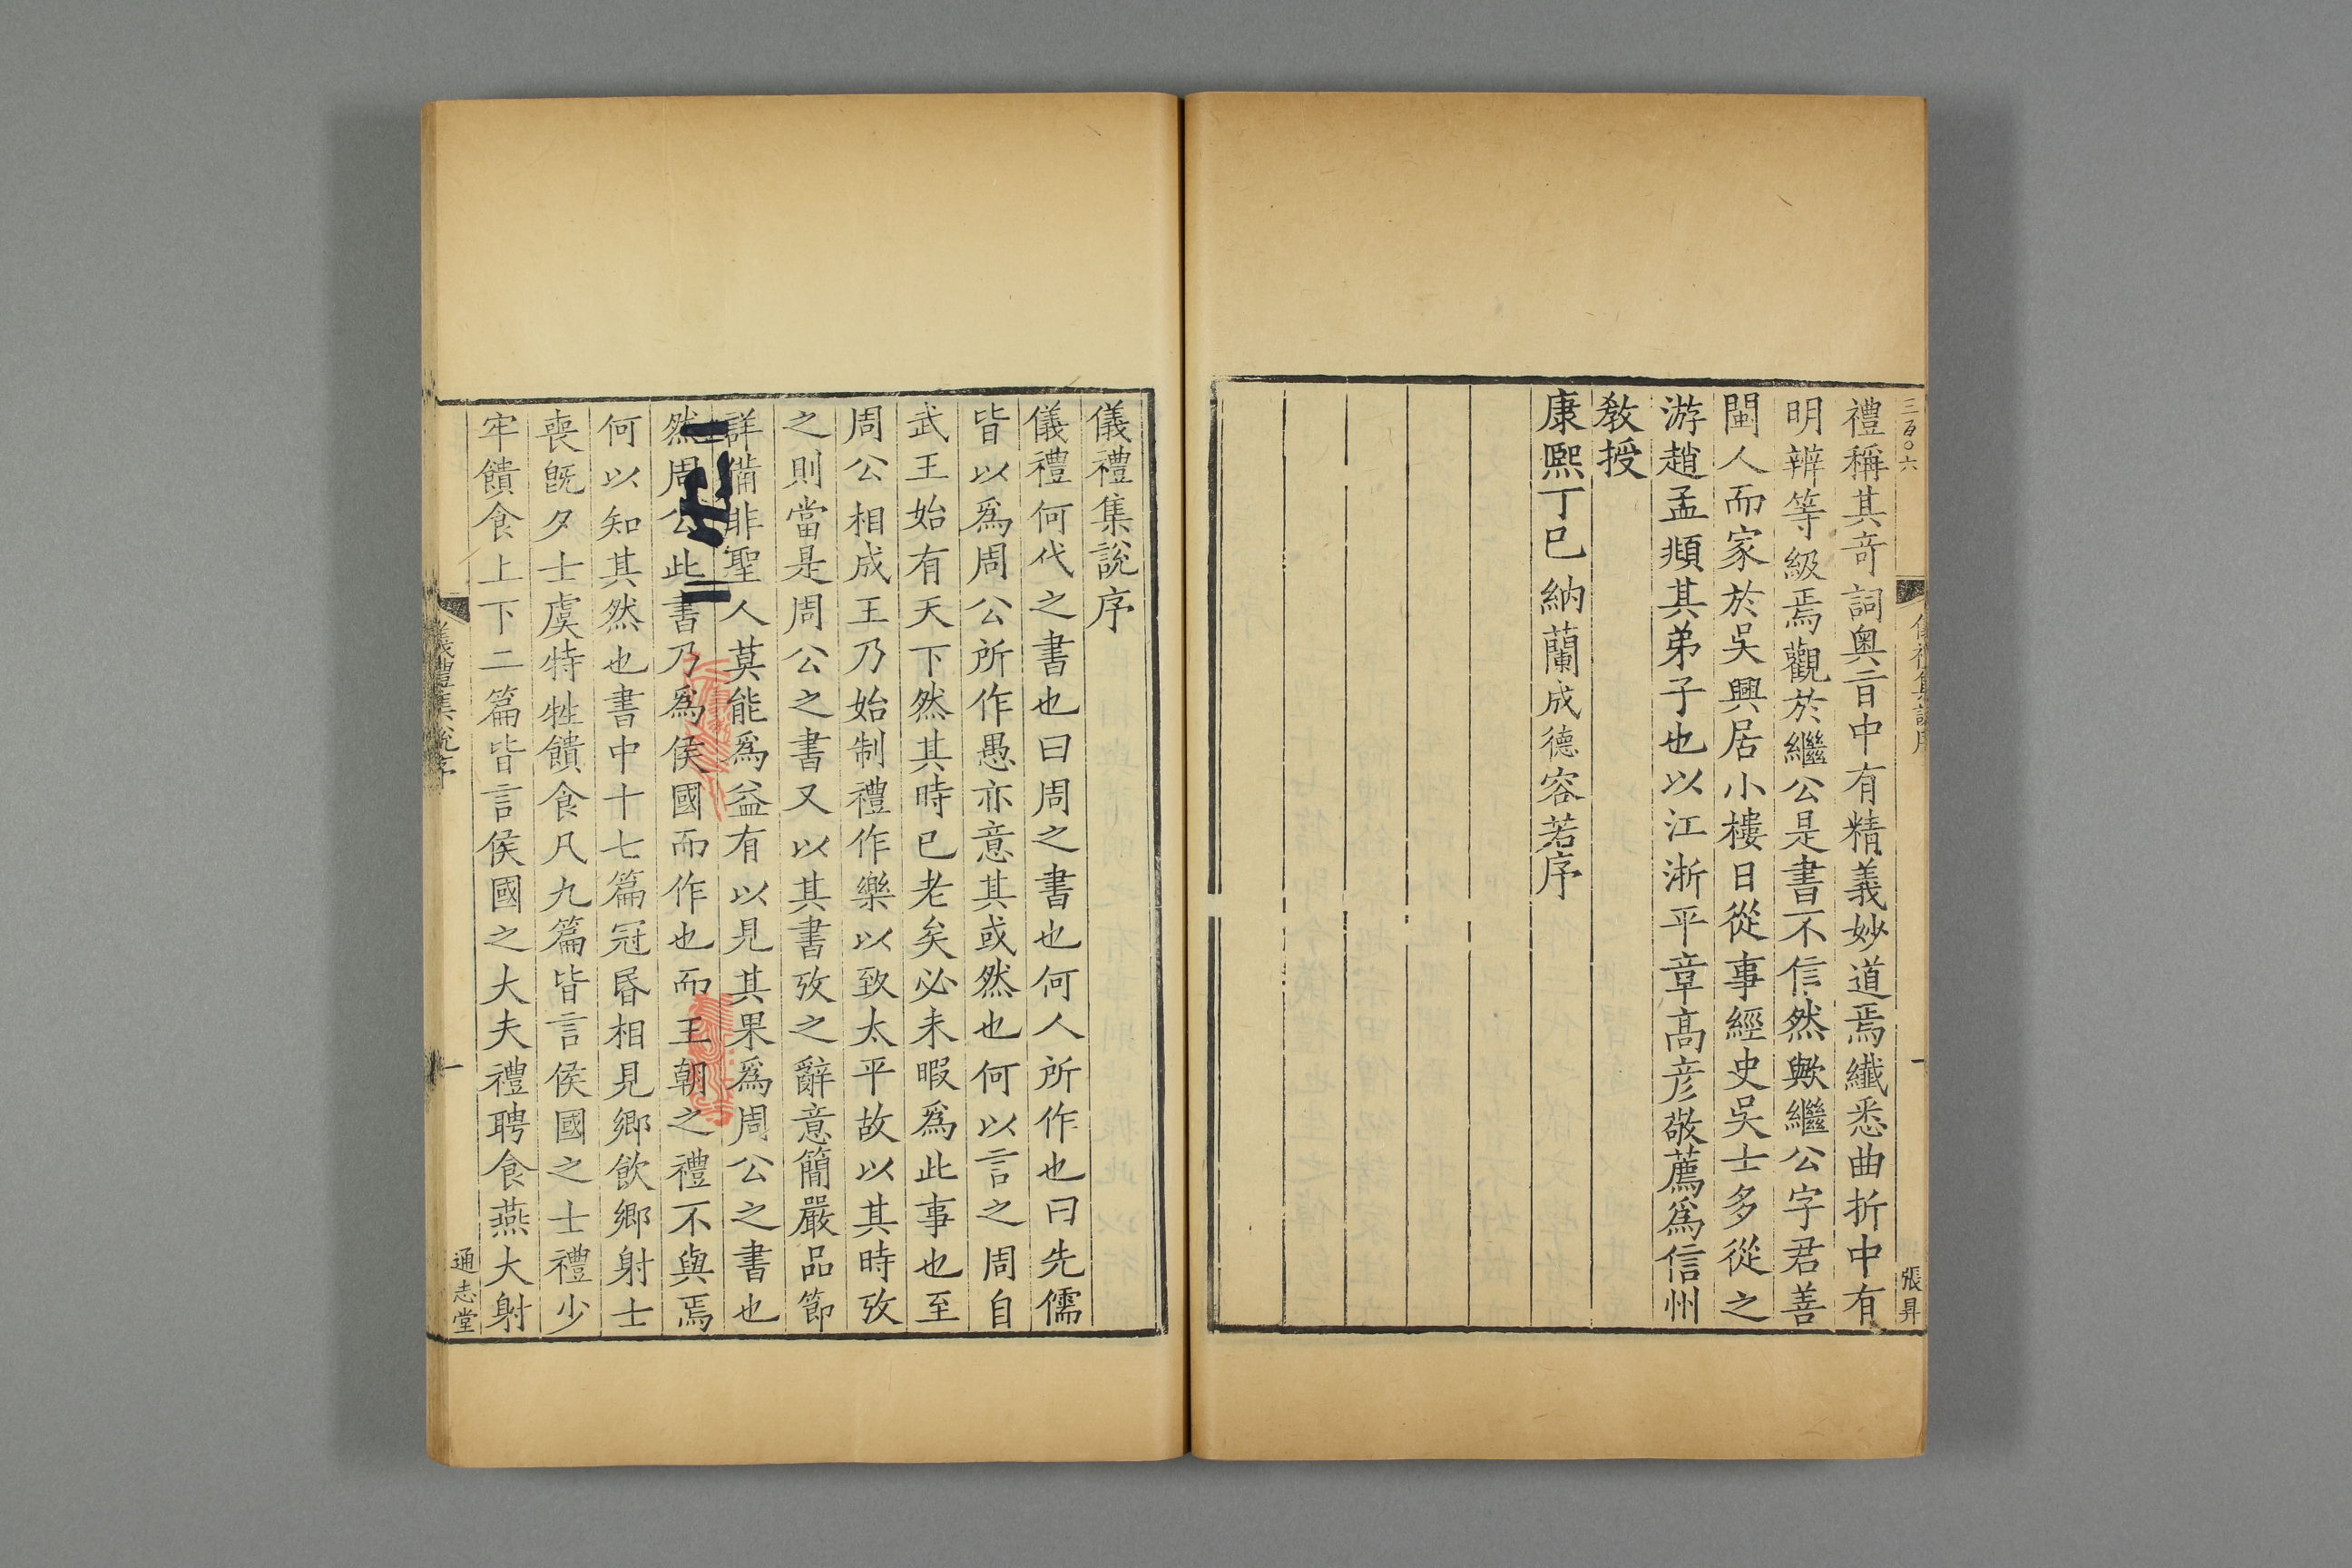 三百〇六
儀禮集說序
一
張昇
禮稱其竒詞奥旨中有精義妙道焉纎悉曲折中有
明辨等級焉觀於繼公是書不信然歟繼公字君善
閩人而家於吳興居小樓日從事經史吳士多從之
游趙孟頫其弟子也以江浙平章高彦敬薦爲信州
教授
康熙丁巳納蘭成德容若序
儀禮集說序
儀禮何代之書也曰周之書也何人所作也曰先儒
皆以爲周公所作愚亦意其或然也何以言之周自
武王始有天下然其時已老矣必未暇爲此事也至
周公相成王乃始制禮作樂以致太平故以其時攷
之則當是周公之書又以其書攷之辭意簡嚴品節
詳備非聖人莫能爲益有以見其果爲周公之書也
然周公此書乃爲侯國而作也而王朝之禮不與焉
何以知其然也書中十七篇冠昏相見鄉飲鄉射士
喪旣夕士虞特牲饋食凡九篇皆言侯國之士禮少
牢饋食上下二篇皆言侯國之大夫禮聘食燕大射
儀禮集說序
一
通志堂